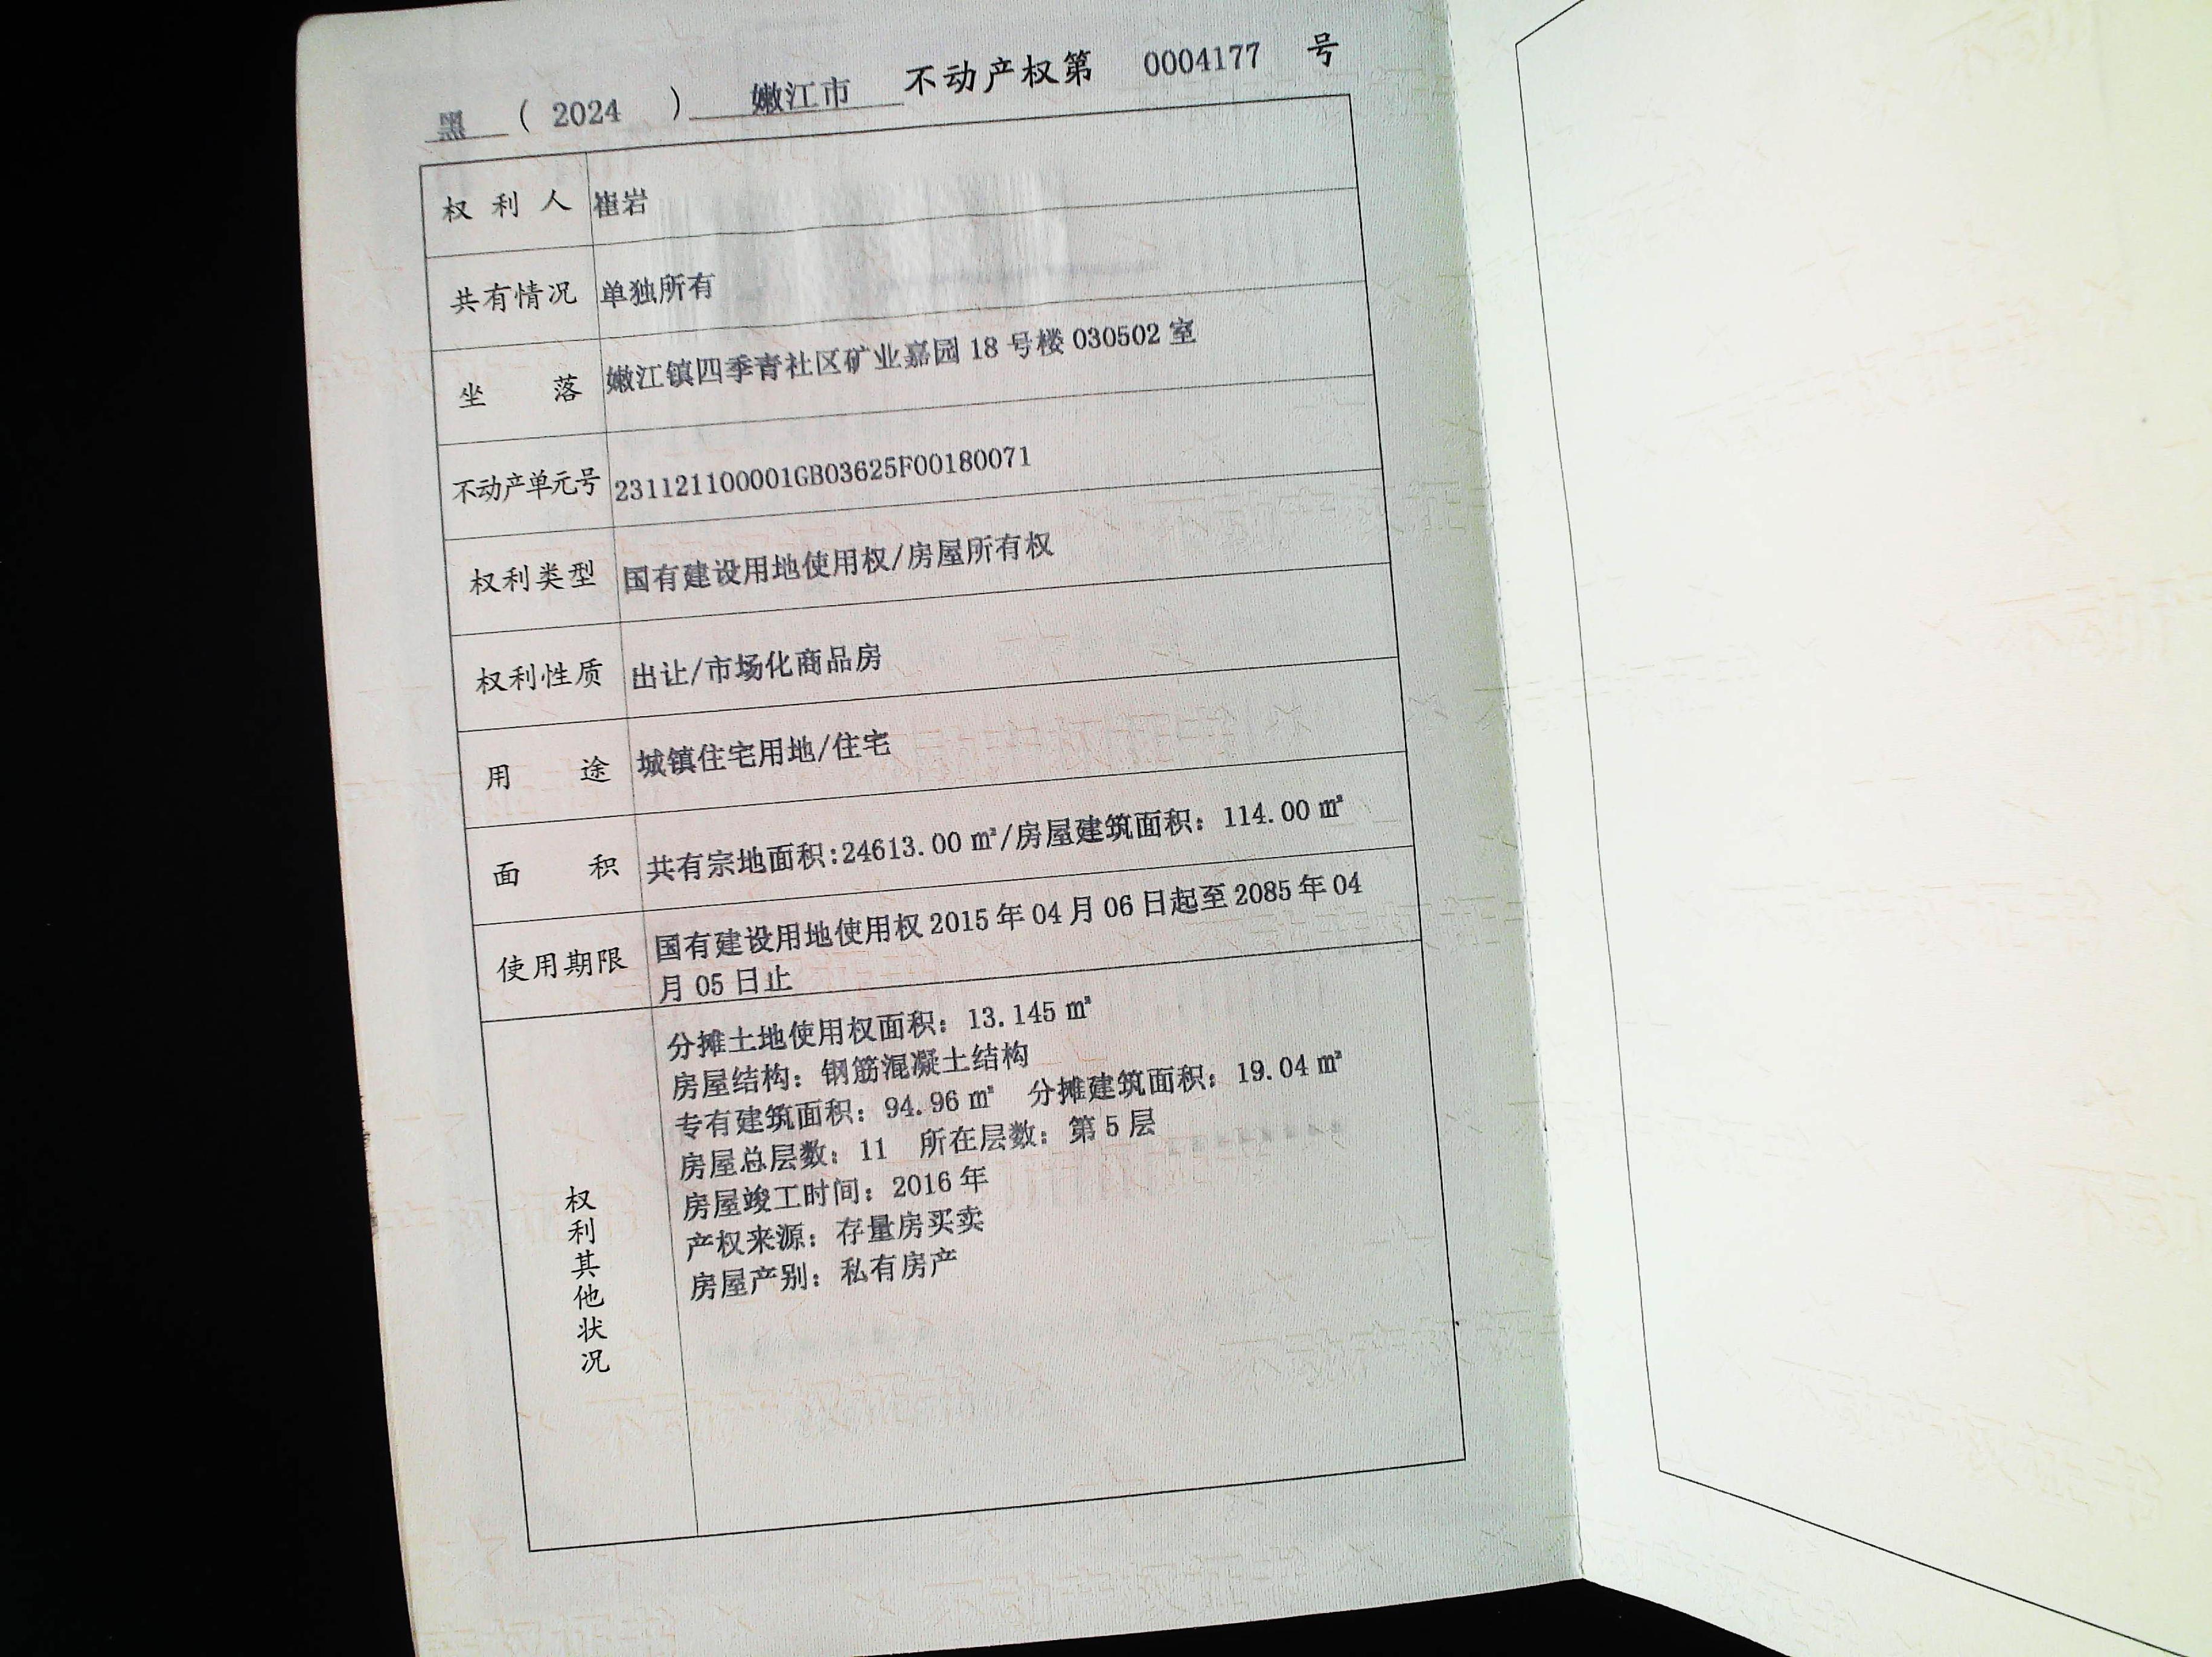 黑 ( 2024 ) 嫩江市 不动产权第 0004177 号
权利人 崔岩
共有情况 单独所有
坐落 嫩江镇四季青社区矿业嘉园 18 号楼 030502 室
不动产单元号 231121100001GB03625F00180071
权利类型 国有建设用地使用权/房屋所有权
权利性质 出让/市场化商品房
用途 城镇住宅用地/住宅
面积 共有宗地面积:24613.00 ㎡/房屋建筑面积：114.00 ㎡
使用期限 国有建设用地使用权 2015 年 04 月 06 日起至 2085 年 04
月 05 日止
权利其他状况
分摊土地使用权面积：13.145 ㎡
房屋结构：钢筋混凝土结构
专有建筑面积：94.96 ㎡ 分摊建筑面积：19.04 ㎡
房屋总层数：11 所在层数：第 5 层
房屋竣工时间：2016 年
产权来源：存量房买卖
房屋产别：私有房产